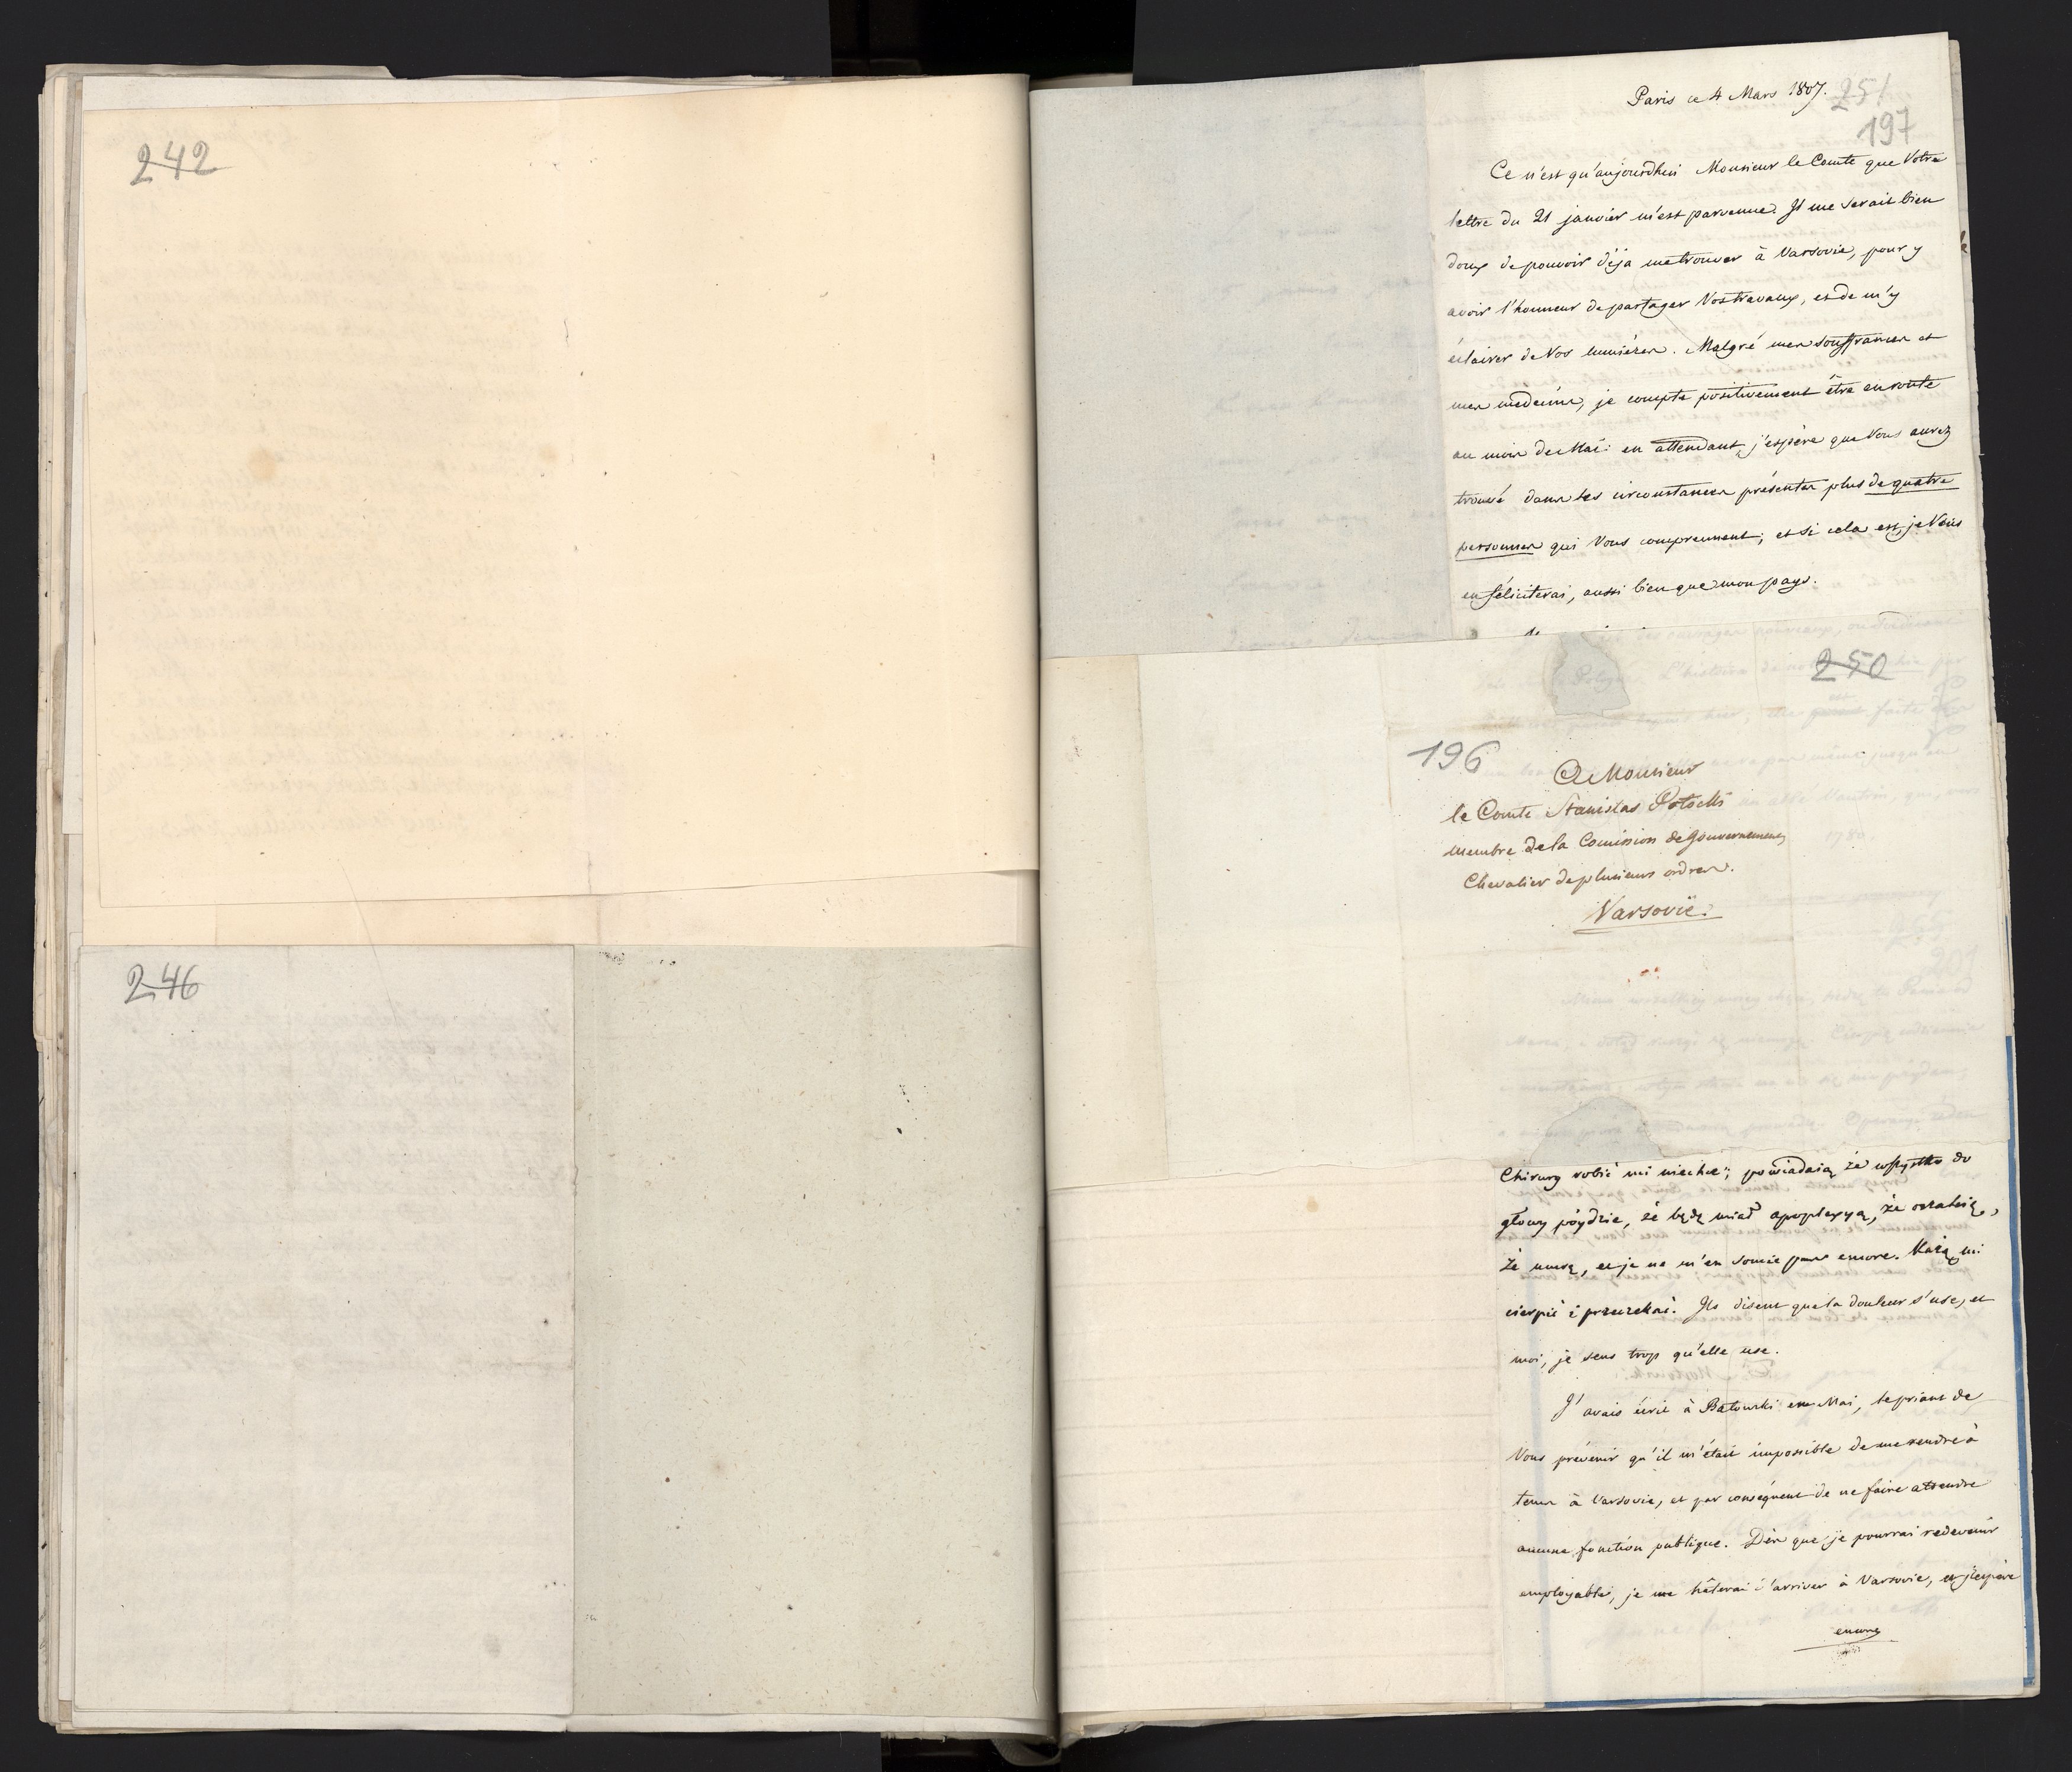 242
246
Paris ce 4 Mars 1807.
251
197
Ce n'est qu'aujourdhui Monsieur le Comte que Votre
lettre du 21 janvier m'est parvenue. Il me serait bien
doux de pouvoir déja me trouver à Varsovie, pour y
avoir l'honneur de partager Vos travaux, et de m'y
éclairer de Vos lumières. Malgré mes souffrances et
mes médecins, je compte positivement être en route
au mois de Mai: en attendant, j'espère que Vous aurez
trouvé dans les circonstances présentes plus de quatre
personnes qui Vous comprennent; et si cela est, je Vous
en féliciterai, aussi bien que mon pays.
250
196
A Monsieur
le Comte Stanislas Potocki
membre de la Comission de Gouvernement,
Chevalier de plusieurs ordres.
Varsovie.
Chirurg robić mi niechce; powiadaią że wszystko do
głowy póydzie, że będę miał apoplexyą, że oszaleię,
że umrę, et je ne m'en soucie pas encore. Każą mi
cierpić i przeczekać. Ils disent que la douleur s'use, et
moi, je sens trop qu'elle use.
J'avais écrit à Batowski en Mai, le priant de
Vous prévenir qu'il m'était impossible de me rendre à
tems à Varsovie, et par conséquent de ne faire attendre
aucune fonction publique. Dès que je pourrai redevenir
employable, je me hâterai d'arriver à Varsovie, et j'espère
encore